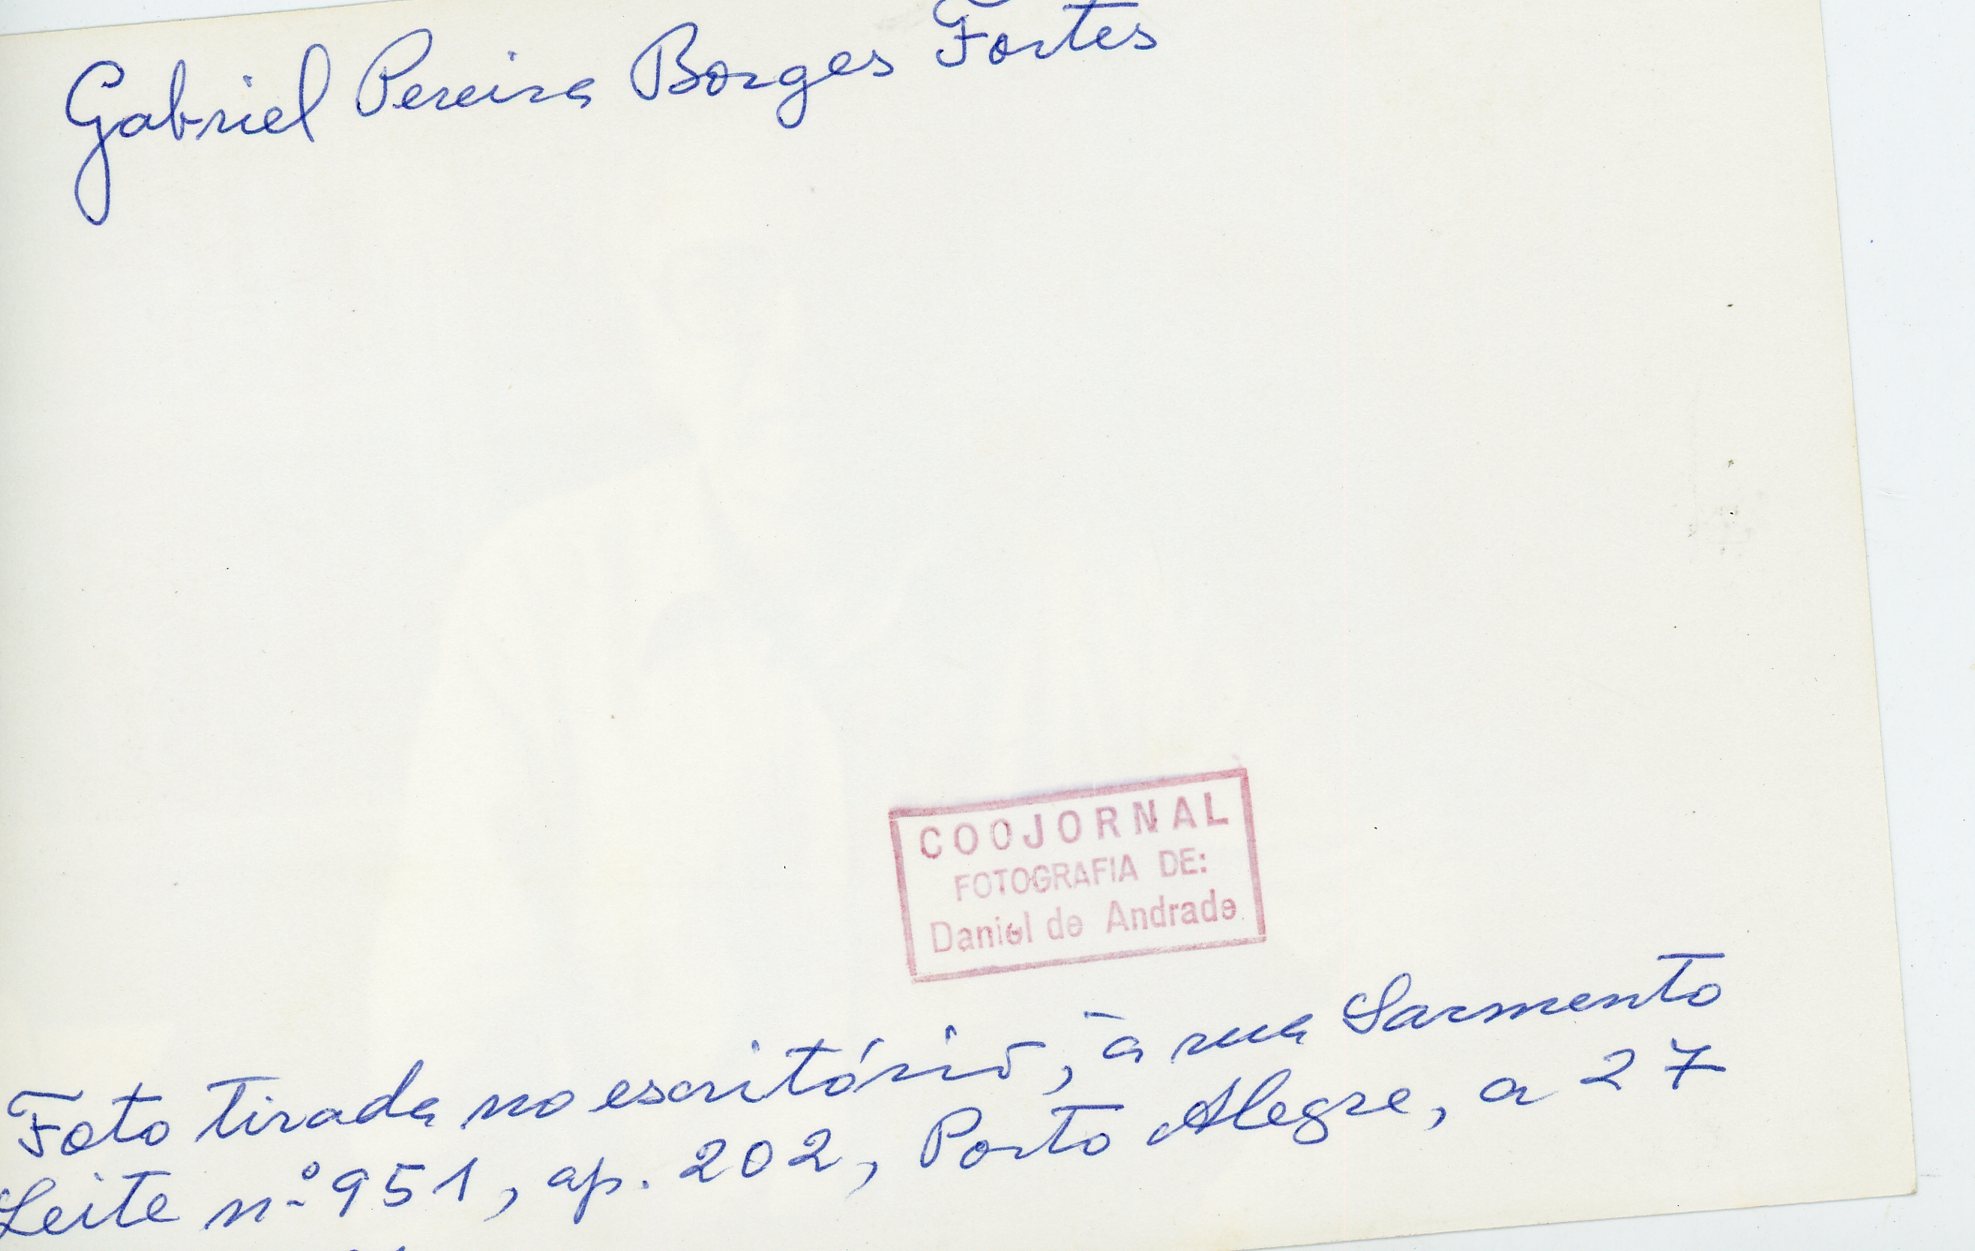 Gabriel Pereira Borges Fortes
COOJORNAL
FOTOGRAFIA DE:
Daniel de Andrade
Foto tirada no escritório, à rua Sarmento
Leite nº 951, ap. 202, Porto Alegre, a 27